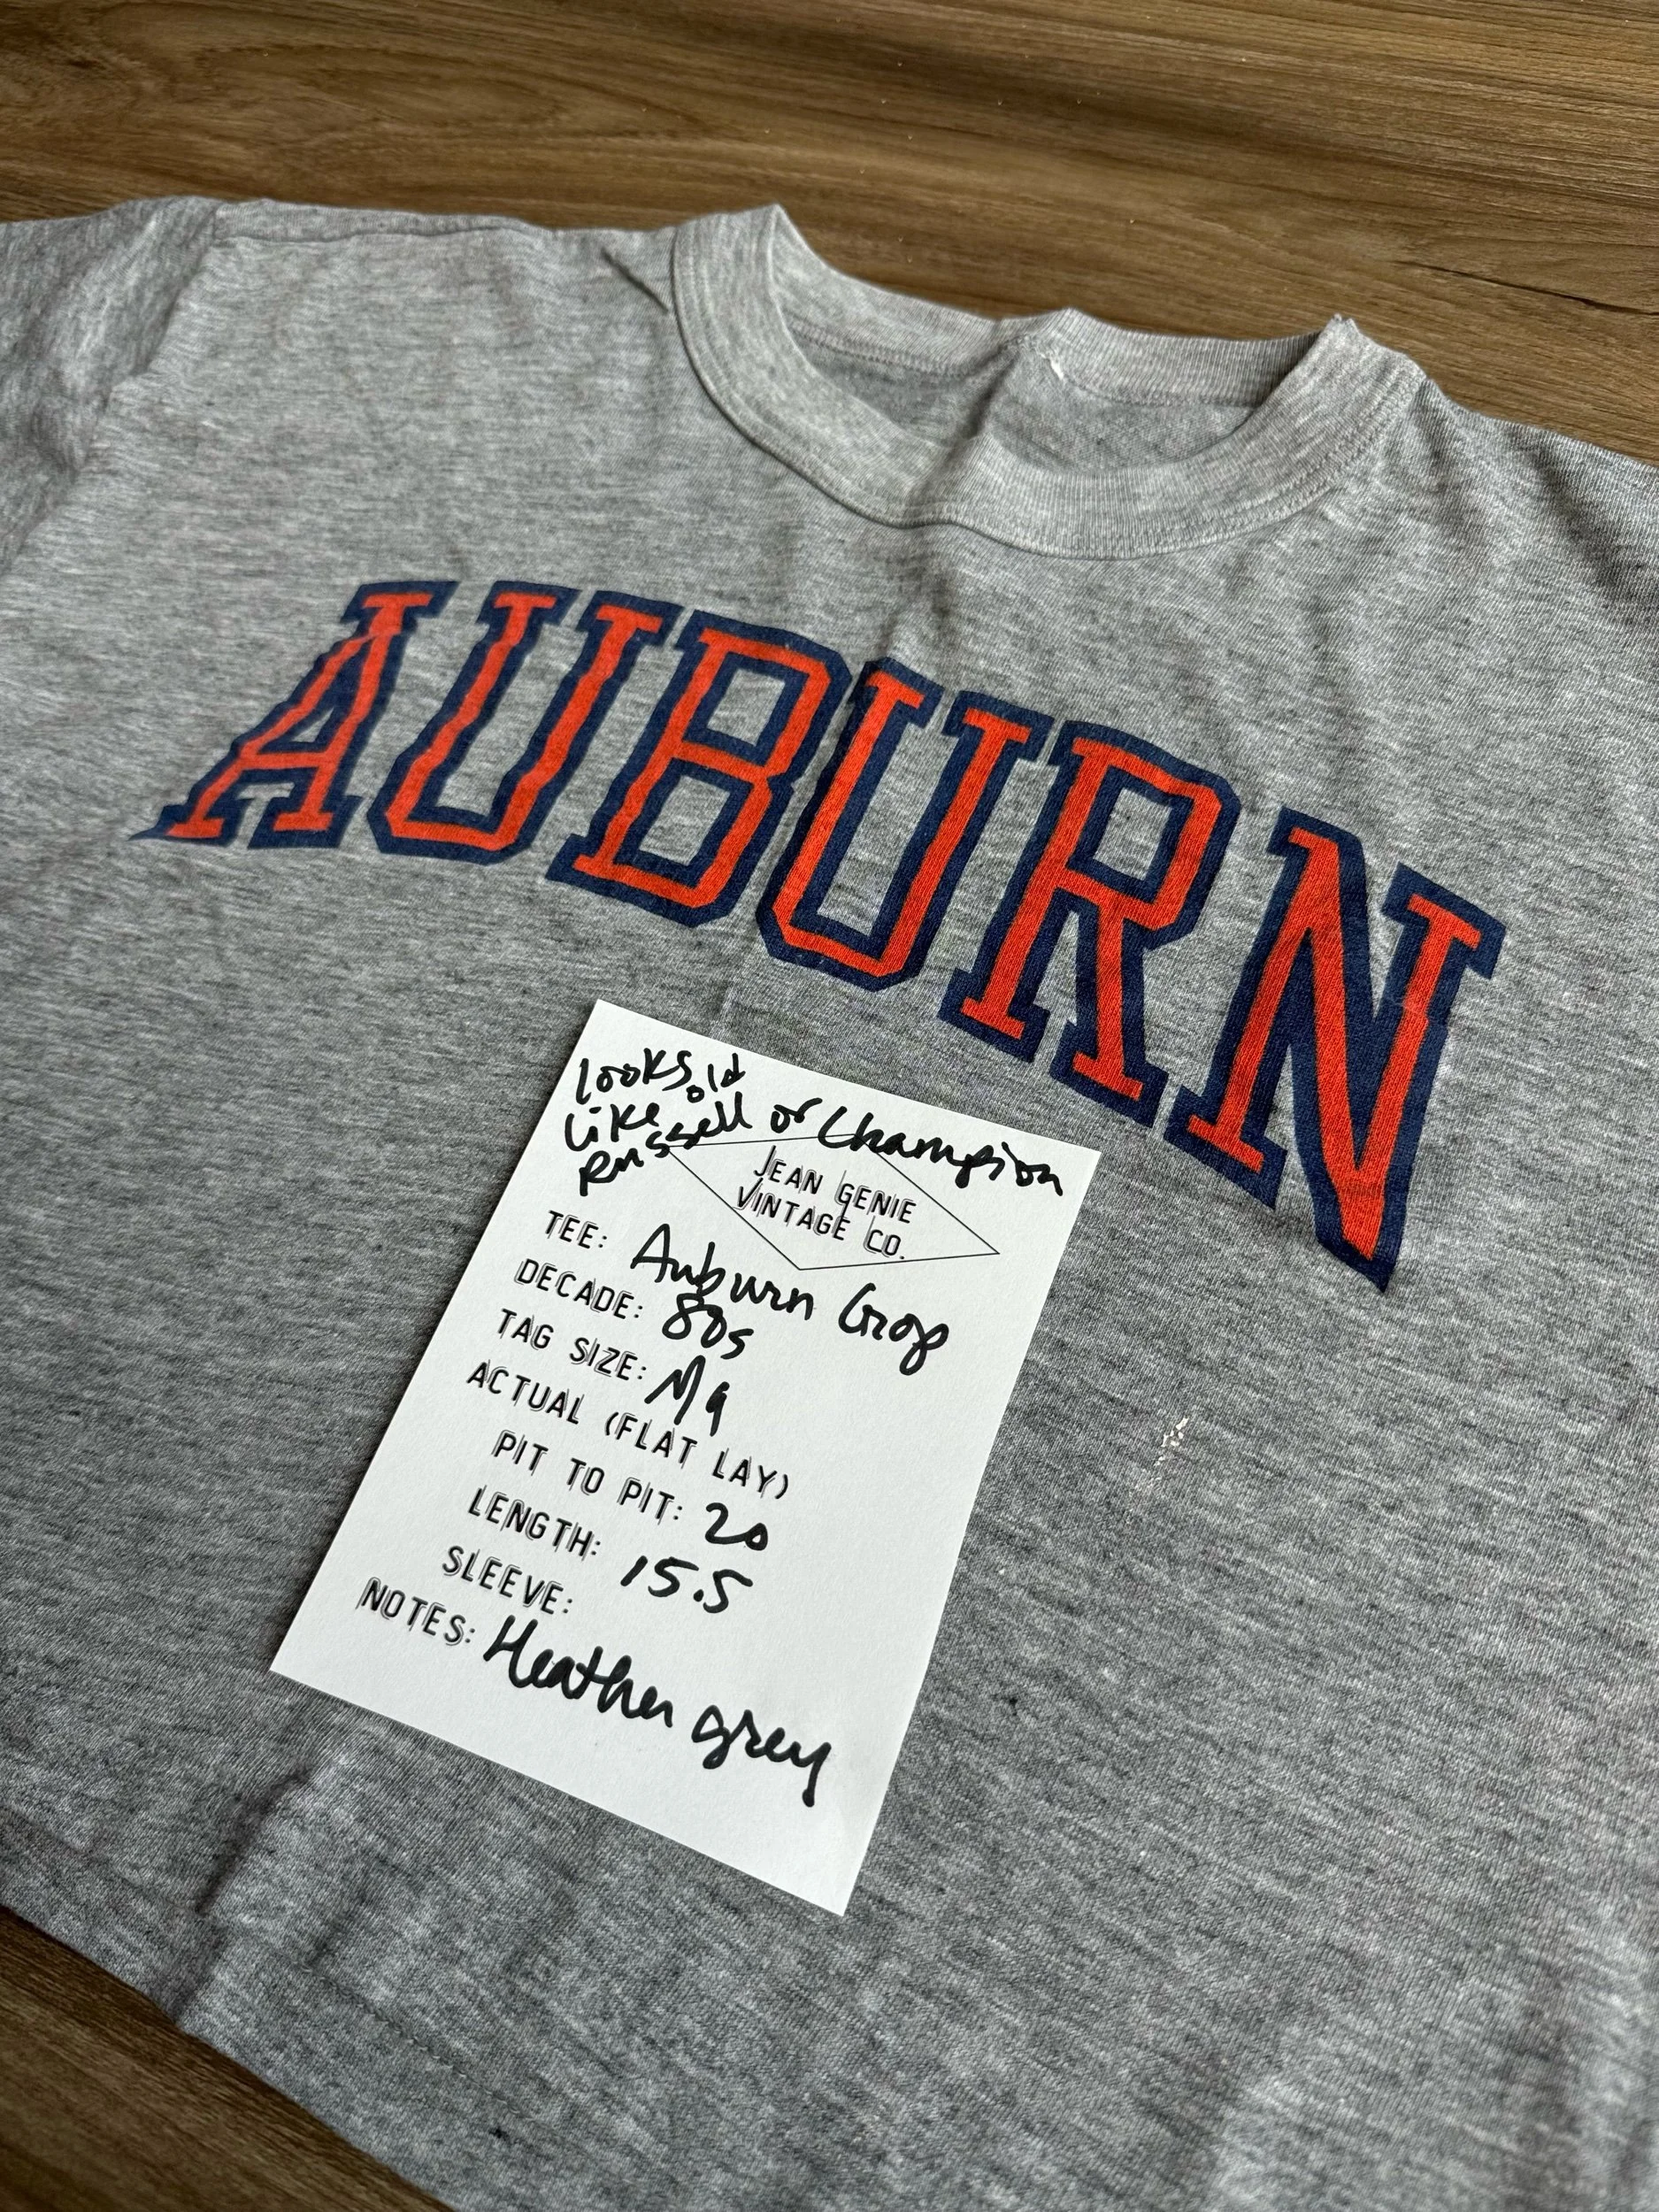 AUBURN
looks old
like
Russell or Champion
JEAN GENIE
VINTAGE CO.
TEE: Auburn Crop
DECADE: 80s
TAG SIZE:
ACTUAL (FLAT LAY)
PIT TO PIT: 20
LENGTH: 15.5
SLEEVE:
NOTES: Heather grey